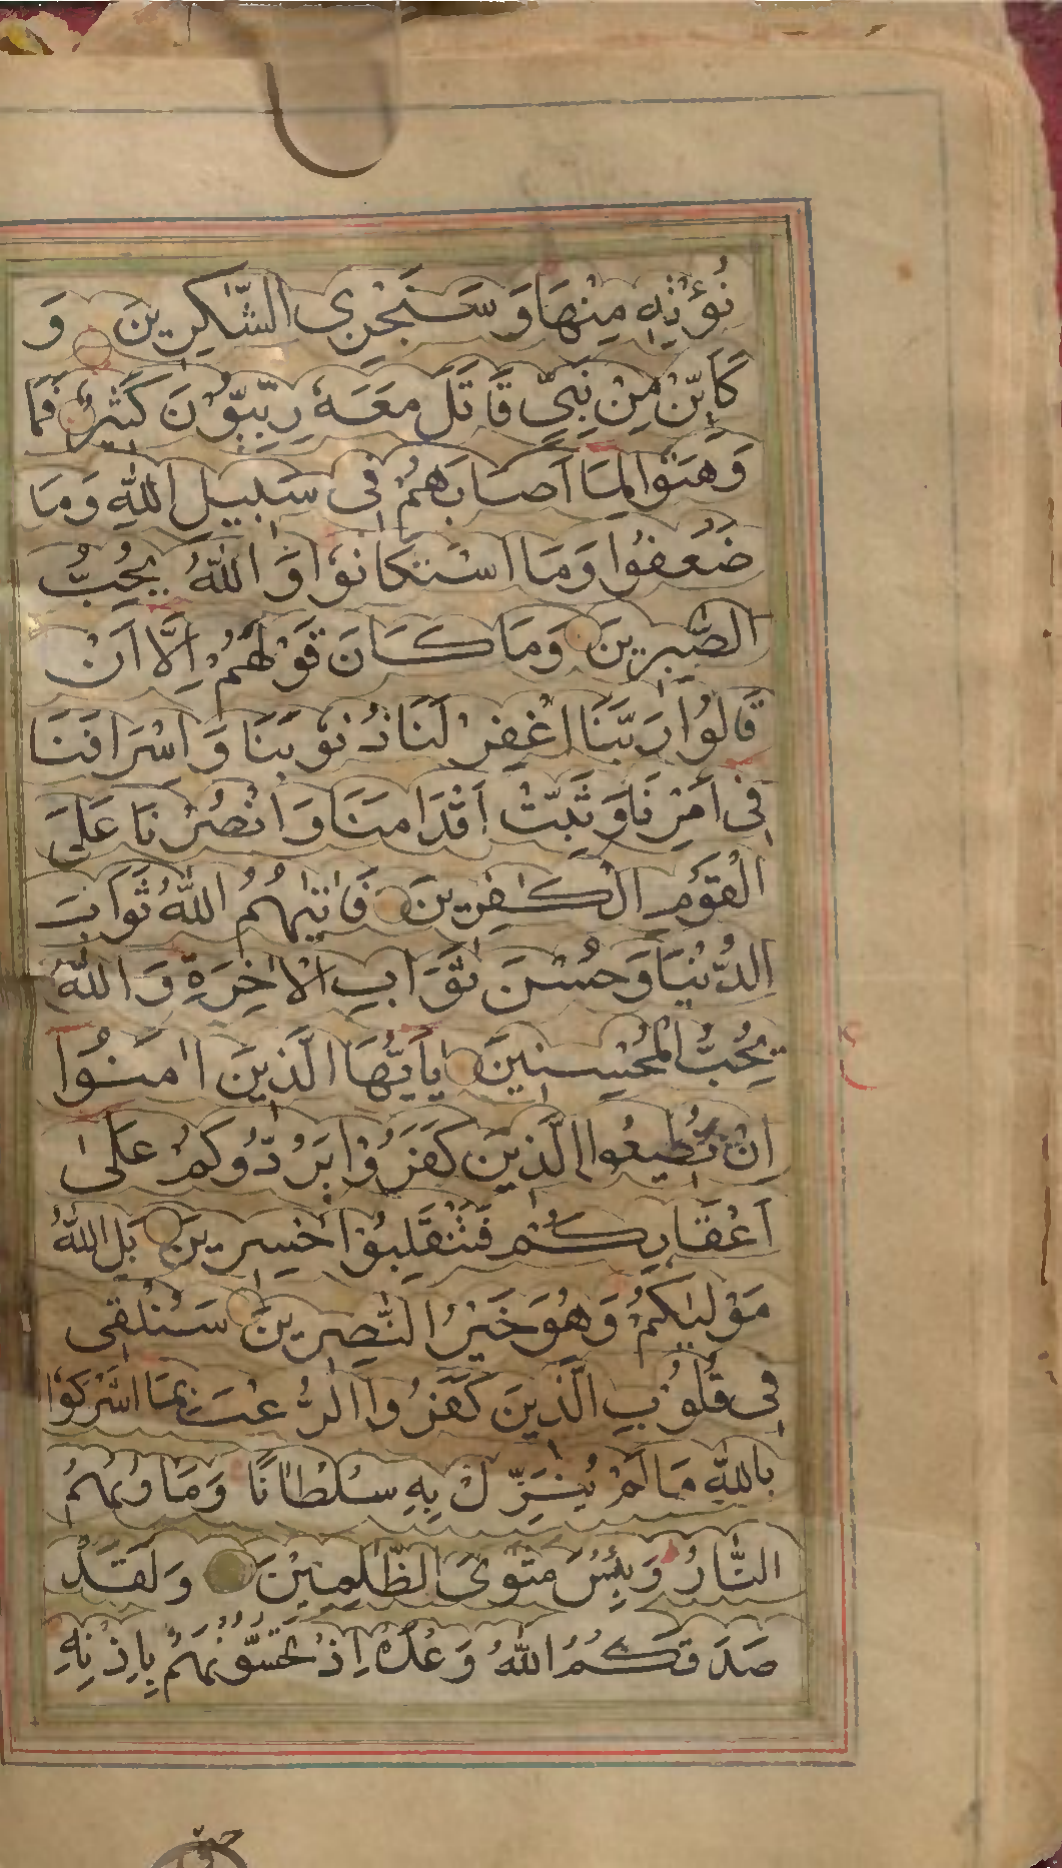 نُؤْتِهٖ مِنْهَا وَ سَنَجْزِى الشّٰكِرِيْنَ وَ
كَاَيِّنْ مِنْ نَبِىٍّ قَاتَلَ مَعَهٗ رِبِّيُّوْنَ كَثِيْرٌ فَمَا
وَهَنُوْا لِمَا اَصَابَهُمْ فِى سَبِيْلِ اللّٰهِ وَمَا
ضَعُفُوْا وَمَا اسْتَكَانُوْا وَاللّٰهُ يُحِبُّ
الصّٰبِرِيْنَ وَمَا كَانَ قَوْلَهُمْ اِلَّا اَنْ
قَالُوْا رَبَّنَا اغْفِرْ لَنَا ذُنُوْبَنَا وَ اِسْرَافَنَا
فِى اَمْرِنَا وَثَبِّتْ اَقْدَامَنَا وَانْصُرْنَا عَلَى
الْقَوْمِ الْكٰفِرِيْنَ فَاٰتٰىهُمُ اللّٰهُ ثَوَابَ
الدُّنْيَا وَحُسْنَ ثَوَابِ الْاٰخِرَةِ وَاللّٰهُ
يُحِبُّ الْمُحْسِنِيْنَ يٰاَيُّهَا الَّذِيْنَ اٰمَنُوْا
اِنْ تُطِيْعُوا الَّذِيْنَ كَفَرُوْا يَرُدُّوْكُمْ عَلٰى
اَعْقَابِكُمْ فَتَنْقَلِبُوْا خٰسِرِيْنَ بَلِ اللّٰهُ
مَوْلٰيكُمْ وَهُوَ خَيْرُ النّٰصِرِيْنَ سَنُلْقِى
فِى قُلُوْبِ الَّذِيْنَ كَفَرُوا الرُّعْبَ بِمَا اَشْرَكُوْا
بِاللّٰهِ مَا لَمْ يُنَزِّلْ بِهٖ سُلْطَانًا وَمَاْوٰىهُمُ
النَّارُ وَبِئْسَ مَثْوَى الظّٰلِمِيْنَ وَلَقَدْ
صَدَقَكُمُ اللّٰهُ وَعْدَهٗ اِذْ تَحُسُّوْنَهُمْ بِاِذْنِهٖ